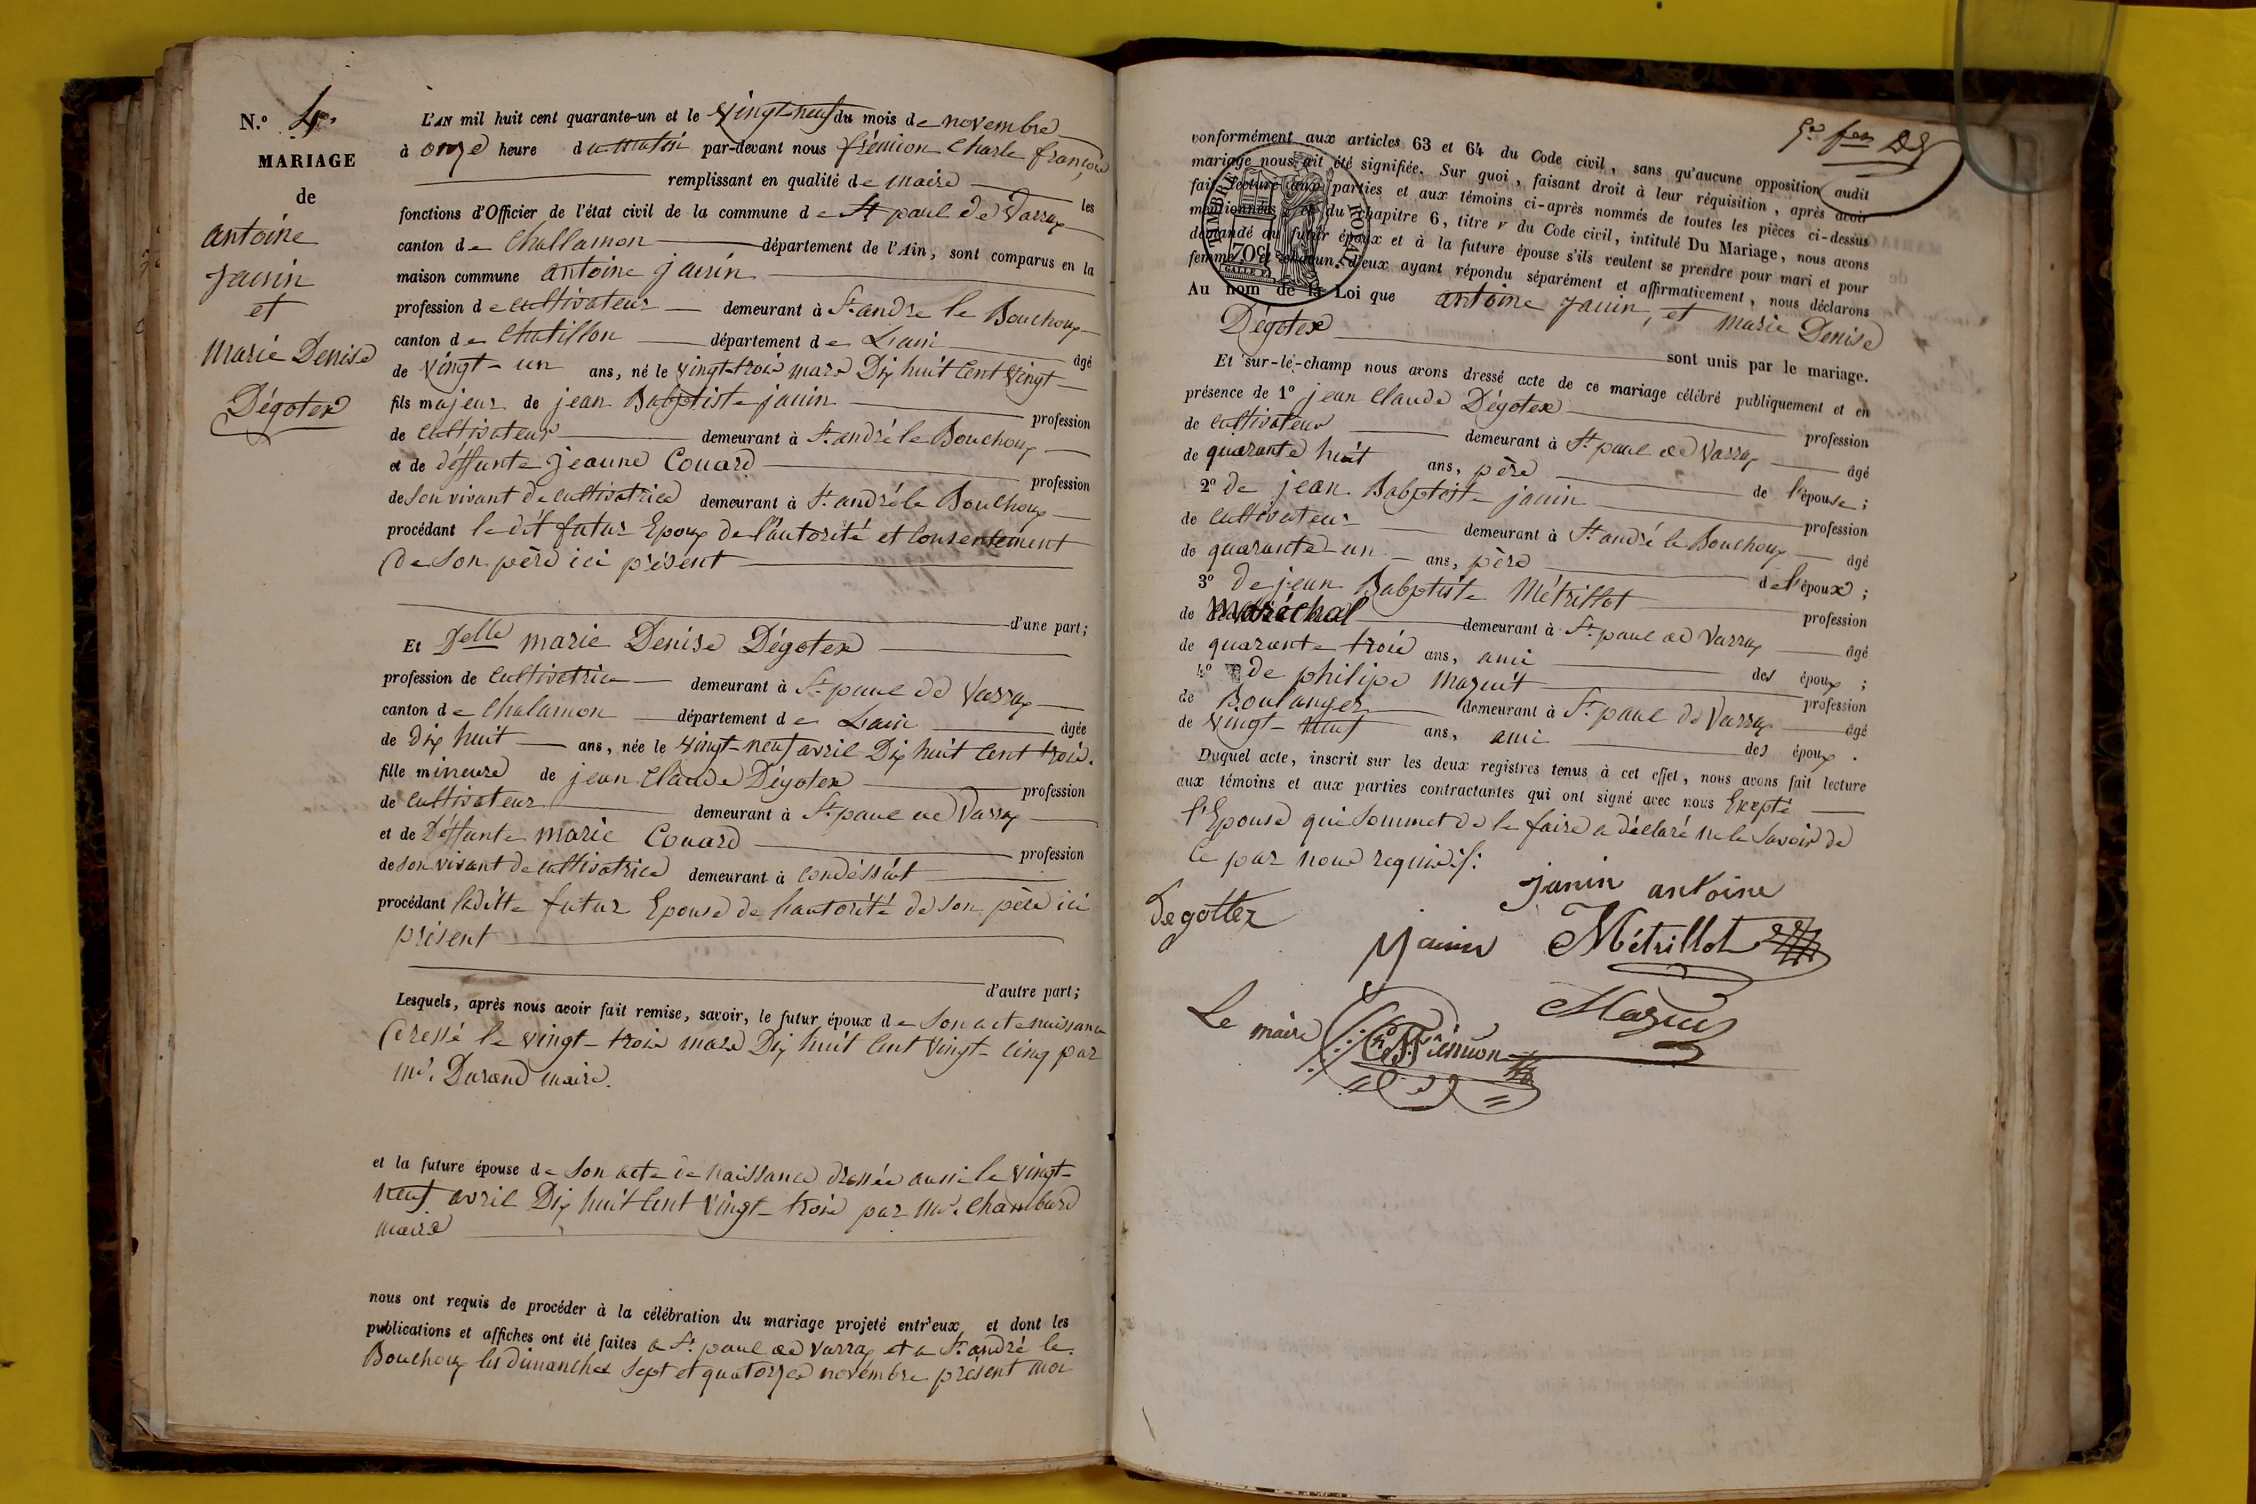 N.º 4.
MARIAGE
de
antoine
janin
et
marie Denise
Dégotex
L'AN mil huit cent quarante-un et le vingt-neuf du mois de novembre
à onze heure du matin par-devant nous frémion Charle françois
remplissant en qualité de maire les
fonctions d'Officier de l'état civil de la commune de St paul de Varax
canton de Challamon département de l'Ain, sont comparus en la
maison commune antoine janin
profession de cultivateur demeurant à St andre le Bouchoux
canton de Chatillon département de Lain âgé
de vingt-un ans, né le vingt-trois mars Dix huit Cent vingt
fils majeur de jean Babptiste janin profession
de cultivateur demeurant à St. andré le Bouchoux
et de déffunte jeanne Couard profession
de Son vivant de cultivatrice demeurant à St. andré le Bouchoux
procédant le dit futur Epoux de l'autorité et Consentement
de Son père ici présent
d'une part;
Et Delle marie Denise Dégotex
profession de cultivatrice demeurant à St. paul de Varax
canton de Chalamon département de Lain âgée
de dix huit ans, née le vingt-neuf avril Dix huit Cent trois.
fille mineure de jean Claude Dégotex profession
de cultivateur demeurant à St. paul de Varax
et de Déffunte marie Couard profession
de son vivant de cultivatrice demeurant à Condéssiat
procédant laditte futur Epouse de lautorité de son père ici
présent
d'autre part;
Lesquels, après nous avoir fait remise, savoir, le futur époux de Son acte naissance
dressé le vingt-trois mars Dix huit Cent vingt-cinq par
mr. Durand maire.
et la future épouse de Son acte de naissance dressée aussi le vingt-
neuf avril Dix huit Cent vingt-trois par mr. Chambard
maire
nous ont requis de procéder à la célébration du mariage projeté entr'eux et dont les
publications et affiches ont été faites a St. paul de varax et a St. andré le
Bouchoux les dimanches Sept et quatorze novembre présent moi
conformément aux articles 63 et 64 du Code civil, sans qu'aucune opposition audit
mariage nous ait été signifiée. Sur quoi, faisant droit à leur réquisition, après avoir
fait lecture aux parties et aux témoins ci-après nommés de toutes les pièces ci-dessus
mentionnées et du chapitre 6, titre v du Code civil, intitulé Du Mariage, nous avons
demandé au futur époux et à la future épouse s'ils veulent se prendre pour mari et pour
femme, et chacun d'eux ayant répondu séparément et affirmativement, nous déclarons
TIMBRE ROYAL
70ct
Au nom de la Loi que antoine janin, et marie Denise
Dégotex sont unis par le mariage.
Et sur-le-champ nous avons dressé acte de ce mariage célébré publiquement et en
présence de 1º jean Claude Dégotex profession
de cultivateur demeurant à St. paul de Varax âgé
de quarante huit ans, père de l'épouse;
2º de jean Babptiste janin profession
de cultivateur demeurant à St. andré le Bouchoux âgé
de quarante-un ans, père de l'époux;
3º de jean Babptiste Métrillot profession
de maréchal demeurant à St. paul de Varax âgé
de quarante trois ans, ami des époux;
4º de philipe mazuit profession
de Boulanger demeurant à St. paul de Varax âgé
de vingt-neuf ans, ami des époux.
Duquel acte, inscrit sur les deux registres tenus à cet effet, nous avons fait lecture
aux témoins et aux parties contractantes qui ont signé avec nous Excepté
l'Epouse qui Sommet de le faire a déclaré ne le Savoir de
Ce par nous requis./:
janin antoine
Degottex
Janin Métrillot
Mazuit
Le maire Ch. F. Frémion